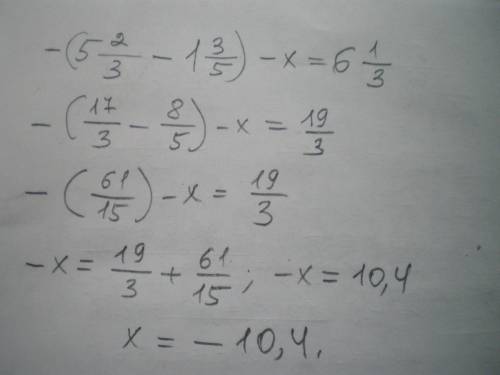 -(5 2/3 - 1 3/5) - x = 6 1/3
-(17/3 - 8/5) - x = 19/3
-(61/15) - x = 19/3
-x = 19/3 + 61/15; -x = 10,4
x = -10,4.